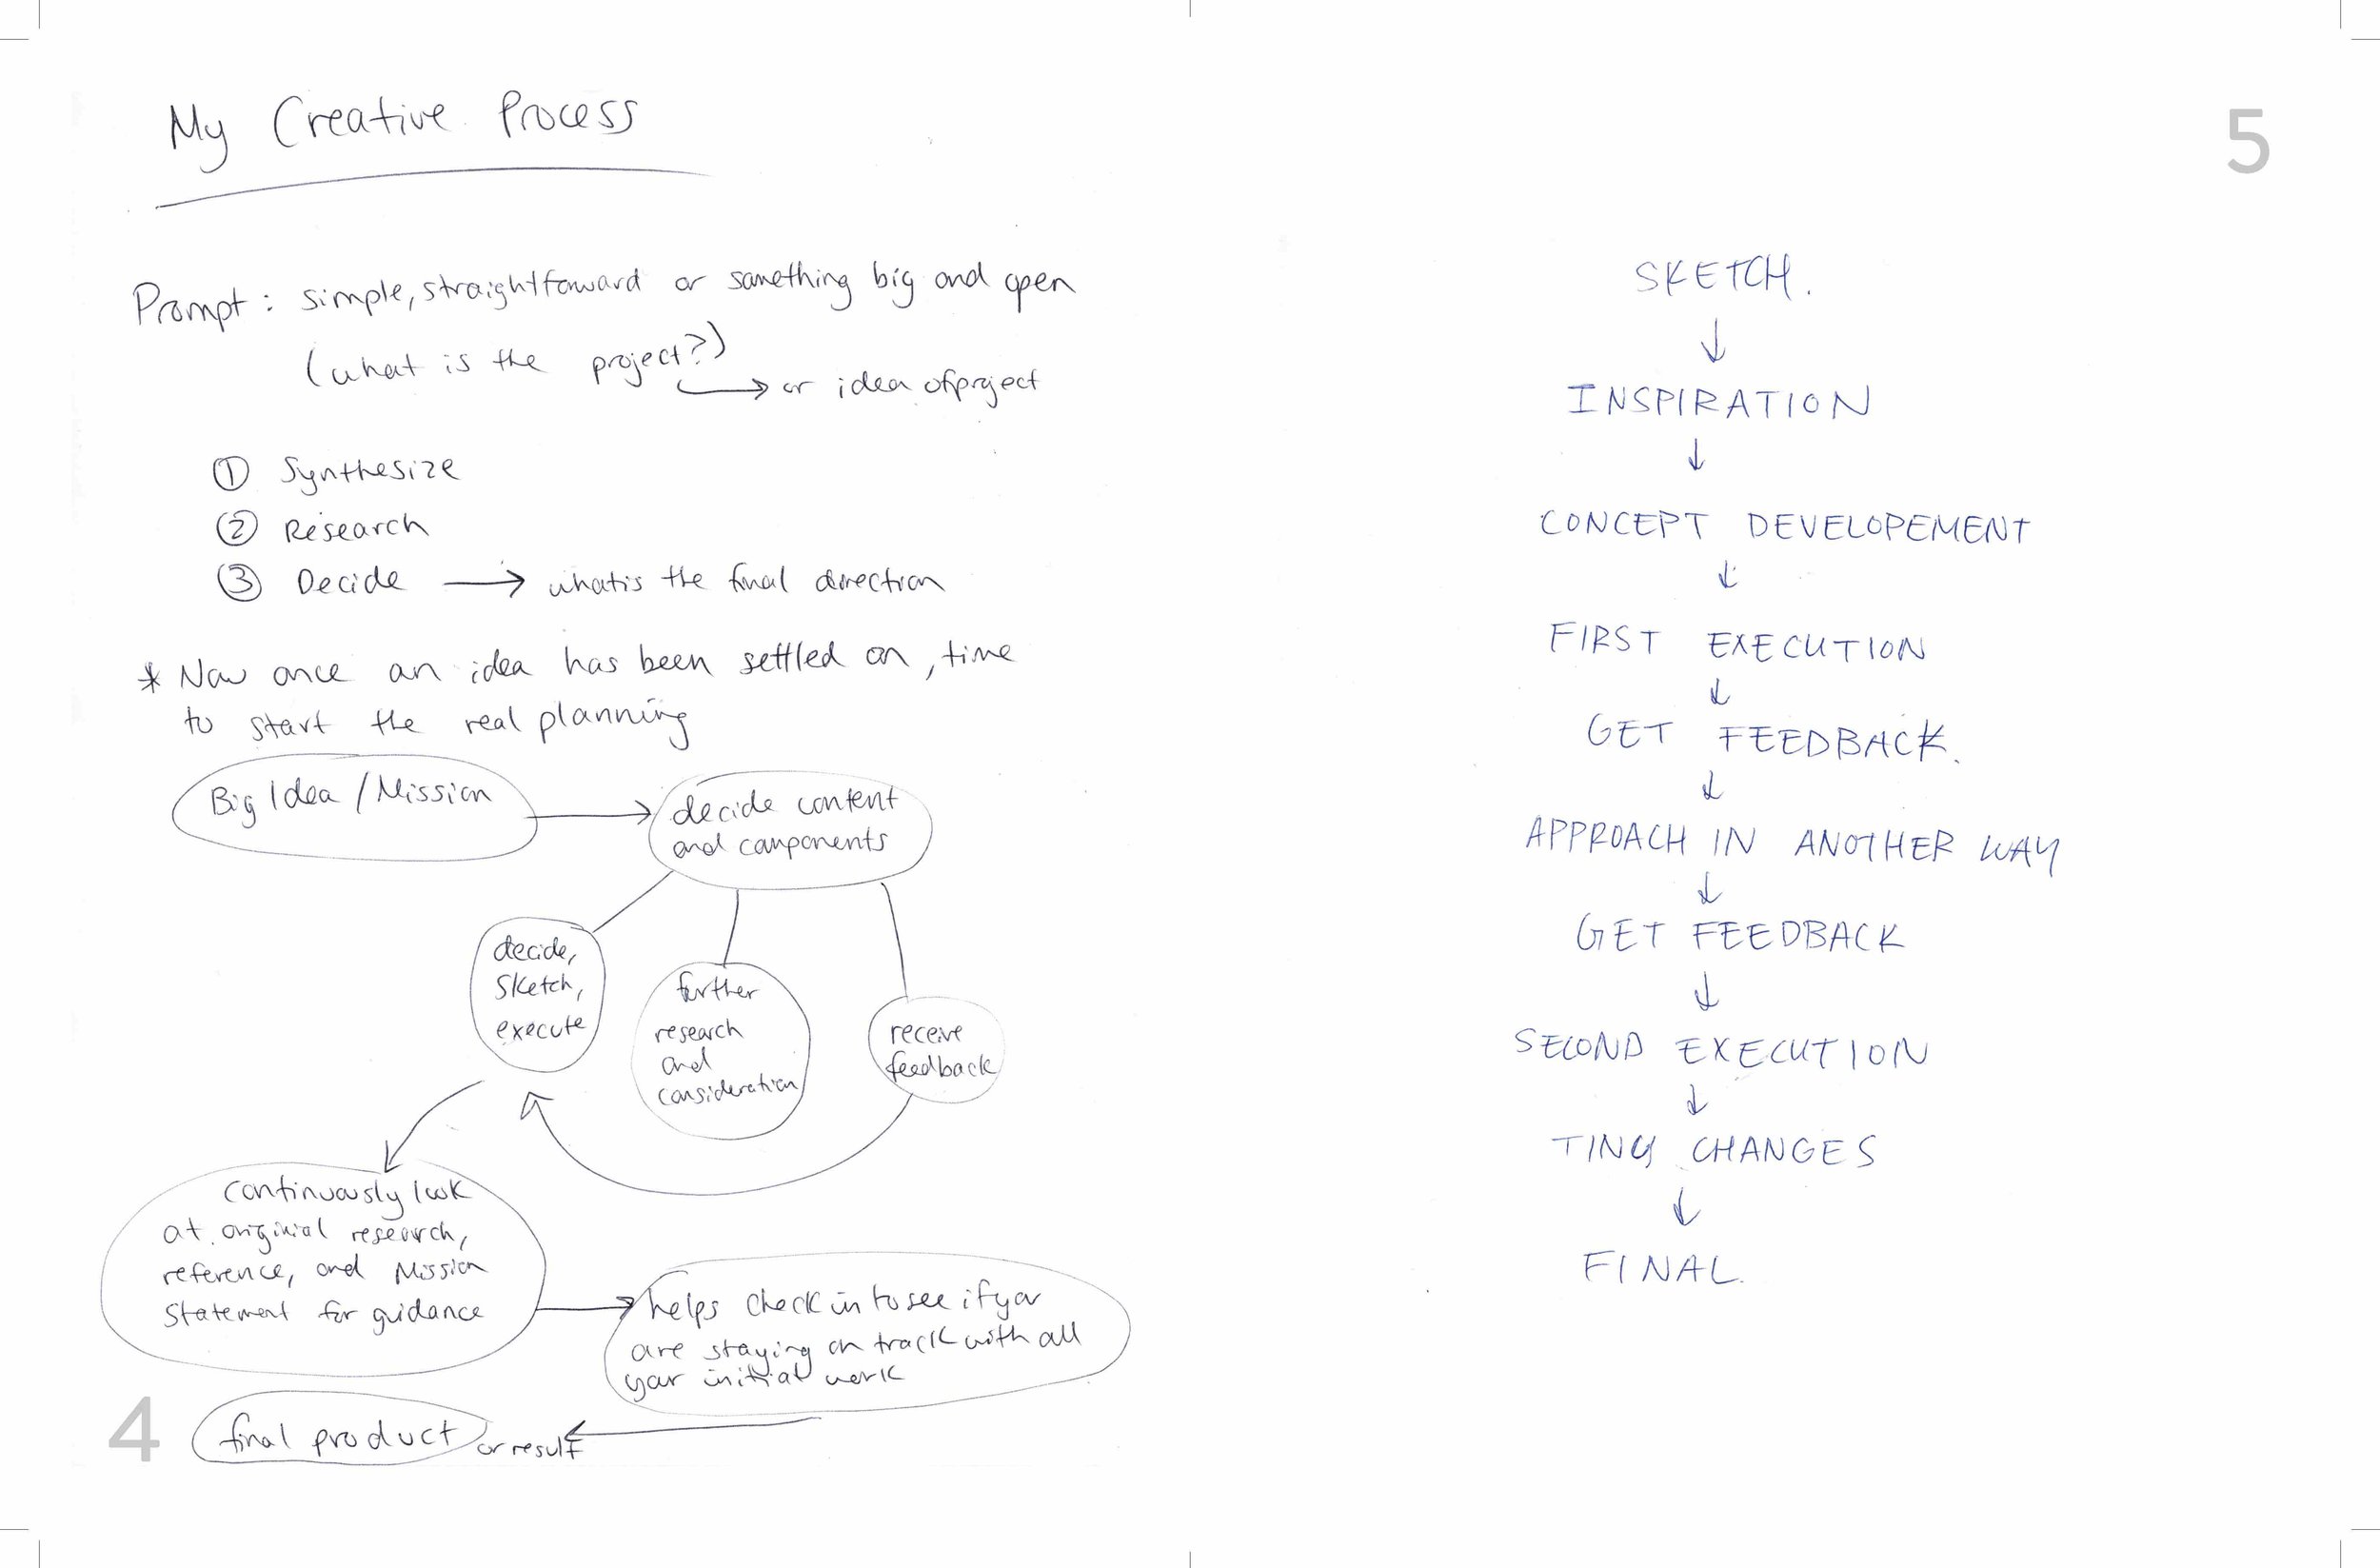 My Creative Process
Prompt: simple, straightforward or something big and open
(what is the project?)
or idea of project
① Synthesize
② Research
③ Decide → what is the final direction
* Now once an idea has been settled on, time
to start the real planning
Big Idea / Mission
decide content
and components
decide,
sketch,
execute
further
research
and
consideration
receive
feedback
continuously look
at original research,
reference, and Mission
Statement for guidance
helps check in to see if you
are staying on track with all
your initial work
final product or result
4
5
SKETCH.
↓
INSPIRATION
↓
CONCEPT DEVELOPEMENT
↓
FIRST EXECUTION
↓
GET FEEDBACK.
↓
APPROACH IN ANOTHER WAY
↓
GET FEEDBACK
↓
SECOND EXECUTION
↓
TINY CHANGES
↓
FINAL.